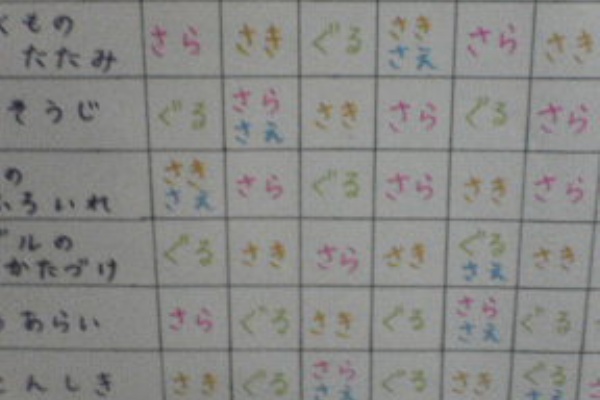 くもの
たたみ
さら さき ぐる さき さら さき
さえ
そうじ
ぐる さら さき さら ぐる さら
さえ
の
ふろいれ
さき さら ぐる さら さき さら
さえ
ルの
かたづけ
ぐる さき さら さき ぐる さき
さえ
あらい
さら ぐる さき ぐる さら ぐる
さえ
とんしき
さき ぐる さら ぐる さき ぐる
さえ さえ